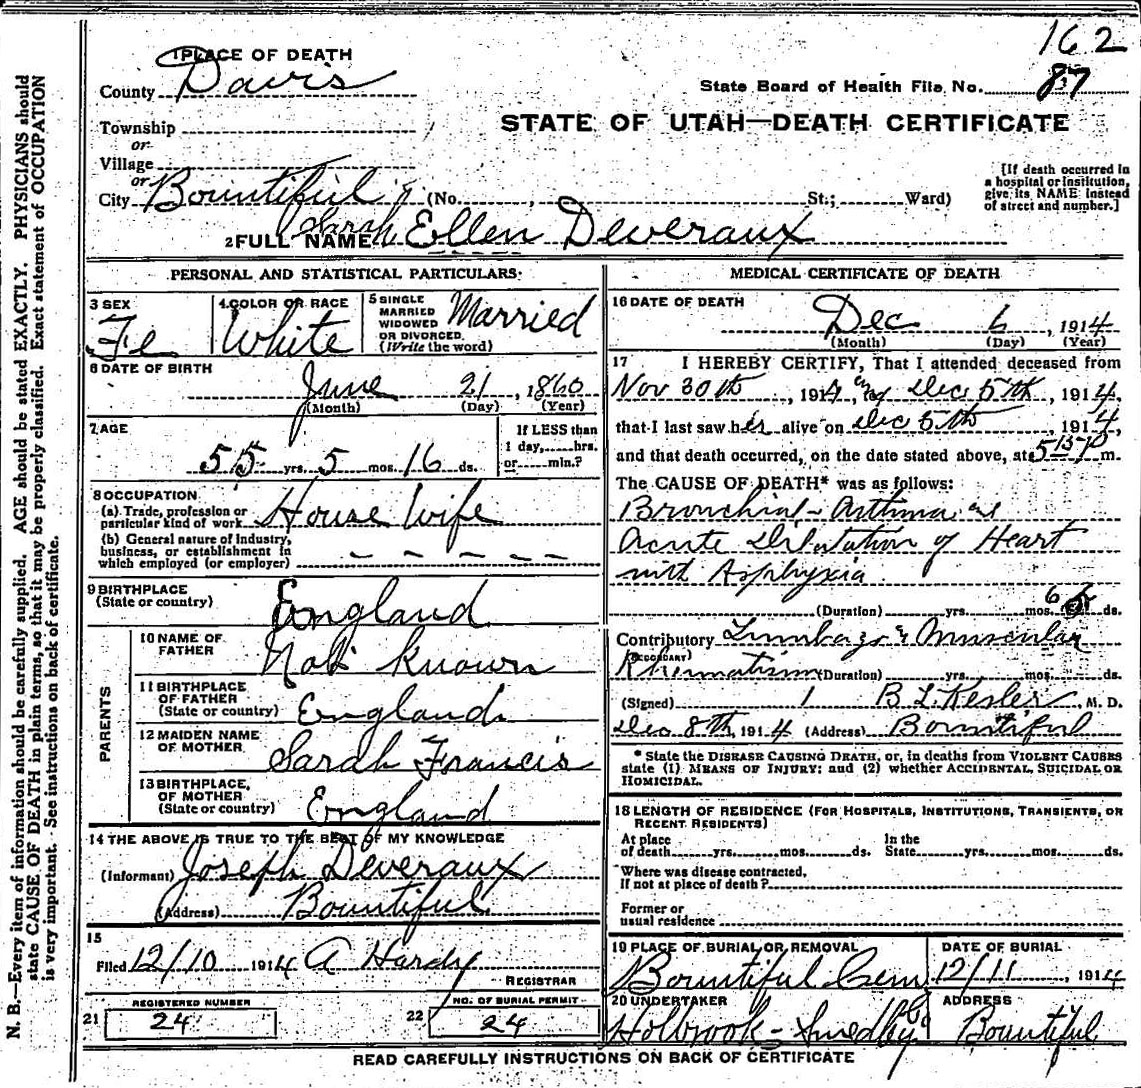 162
1 PLACE OF DEATH
County Davis
State Board of Health File No. 87
Township
or
STATE OF UTAH—DEATH CERTIFICATE
Village
or
City Bountiful (No. , St.; Ward)
[If death occurred in a hospital or institution, give its NAME instead of street and number.]
2 FULL NAME Sarah Ellen Deveraux
PERSONAL AND STATISTICAL PARTICULARS
3 SEX
Fe
4 COLOR OR RACE
White
5 SINGLE
MARRIED
WIDOWED
OR DIVORCED
(Write the word)
Married
6 DATE OF BIRTH
June 21, 1860
(Month) (Day) (Year)
7 AGE
55 yrs. 5 mos. 16 ds.
If LESS than
1 day, hrs.
or min.?
8 OCCUPATION
(a) Trade, profession or
particular kind of work House Wife
(b) General nature of industry,
business, or establishment in
which employed (or employer)
9 BIRTHPLACE
(State or country) England
PARENTS
10 NAME OF
FATHER Not known
11 BIRTHPLACE
OF FATHER
(State or country) England
12 MAIDEN NAME
OF MOTHER Sarah Francis
13 BIRTHPLACE
OF MOTHER
(State or country) England
14 THE ABOVE IS TRUE TO THE BEST OF MY KNOWLEDGE
(Informant) Joseph Deveraux
(Address) Bountiful
15
Filed 12/10 1914 A Hardy
REGISTRAR
REGISTERED NUMBER
21 24
NO. OF BURIAL PERMIT
22 24
MEDICAL CERTIFICATE OF DEATH
16 DATE OF DEATH
Dec 6, 1914
(Month) (Day) (Year)
17 I HEREBY CERTIFY, That I attended deceased from
Nov 30th, 1914, Dec 5th, 1914,
that I last saw her alive on Dec 5th, 1914,
and that death occurred, on the date stated above, at 5 15 P m.
The CAUSE OF DEATH* was as follows:
Bronchial - Asthma
Acute Dilatation of Heart
with Asphyxia
(Duration) yrs. mos. 6 ds.
Contributory Lumbago & Muscular
(SECONDARY)
Rheumatism (Duration) yrs. mos. ds.
(Signed) B L Kesler, M. D.
Dec 8th, 1914 (Address) Bountiful
* State the DISEASE CAUSING DEATH, or, in deaths from VIOLENT CAUSES
state (1) MEANS OF INJURY; and (2) whether ACCIDENTAL, SUICIDAL OR
HOMICIDAL.
18 LENGTH OF RESIDENCE (FOR HOSPITALS, INSTITUTIONS, TRANSIENTS, OR
RECENT RESIDENTS)
At place In the
of death yrs. mos. ds. State yrs. mos. ds.
Where was disease contracted,
If not at place of death?
Former or
usual residence
19 PLACE OF BURIAL OR REMOVAL
Bountiful Cem
DATE OF BURIAL
12/11, 1914
20 UNDERTAKER
Holbrook - Smedley
ADDRESS
Bountiful
READ CAREFULLY INSTRUCTIONS ON BACK OF CERTIFICATE
N. B.—Every item of information should be carefully supplied. AGE should be stated EXACTLY. PHYSICIANS should
state CAUSE OF DEATH in plain terms, so that it may be properly classified. Exact statement of OCCUPATION
is very important. See instructions on back of certificate.